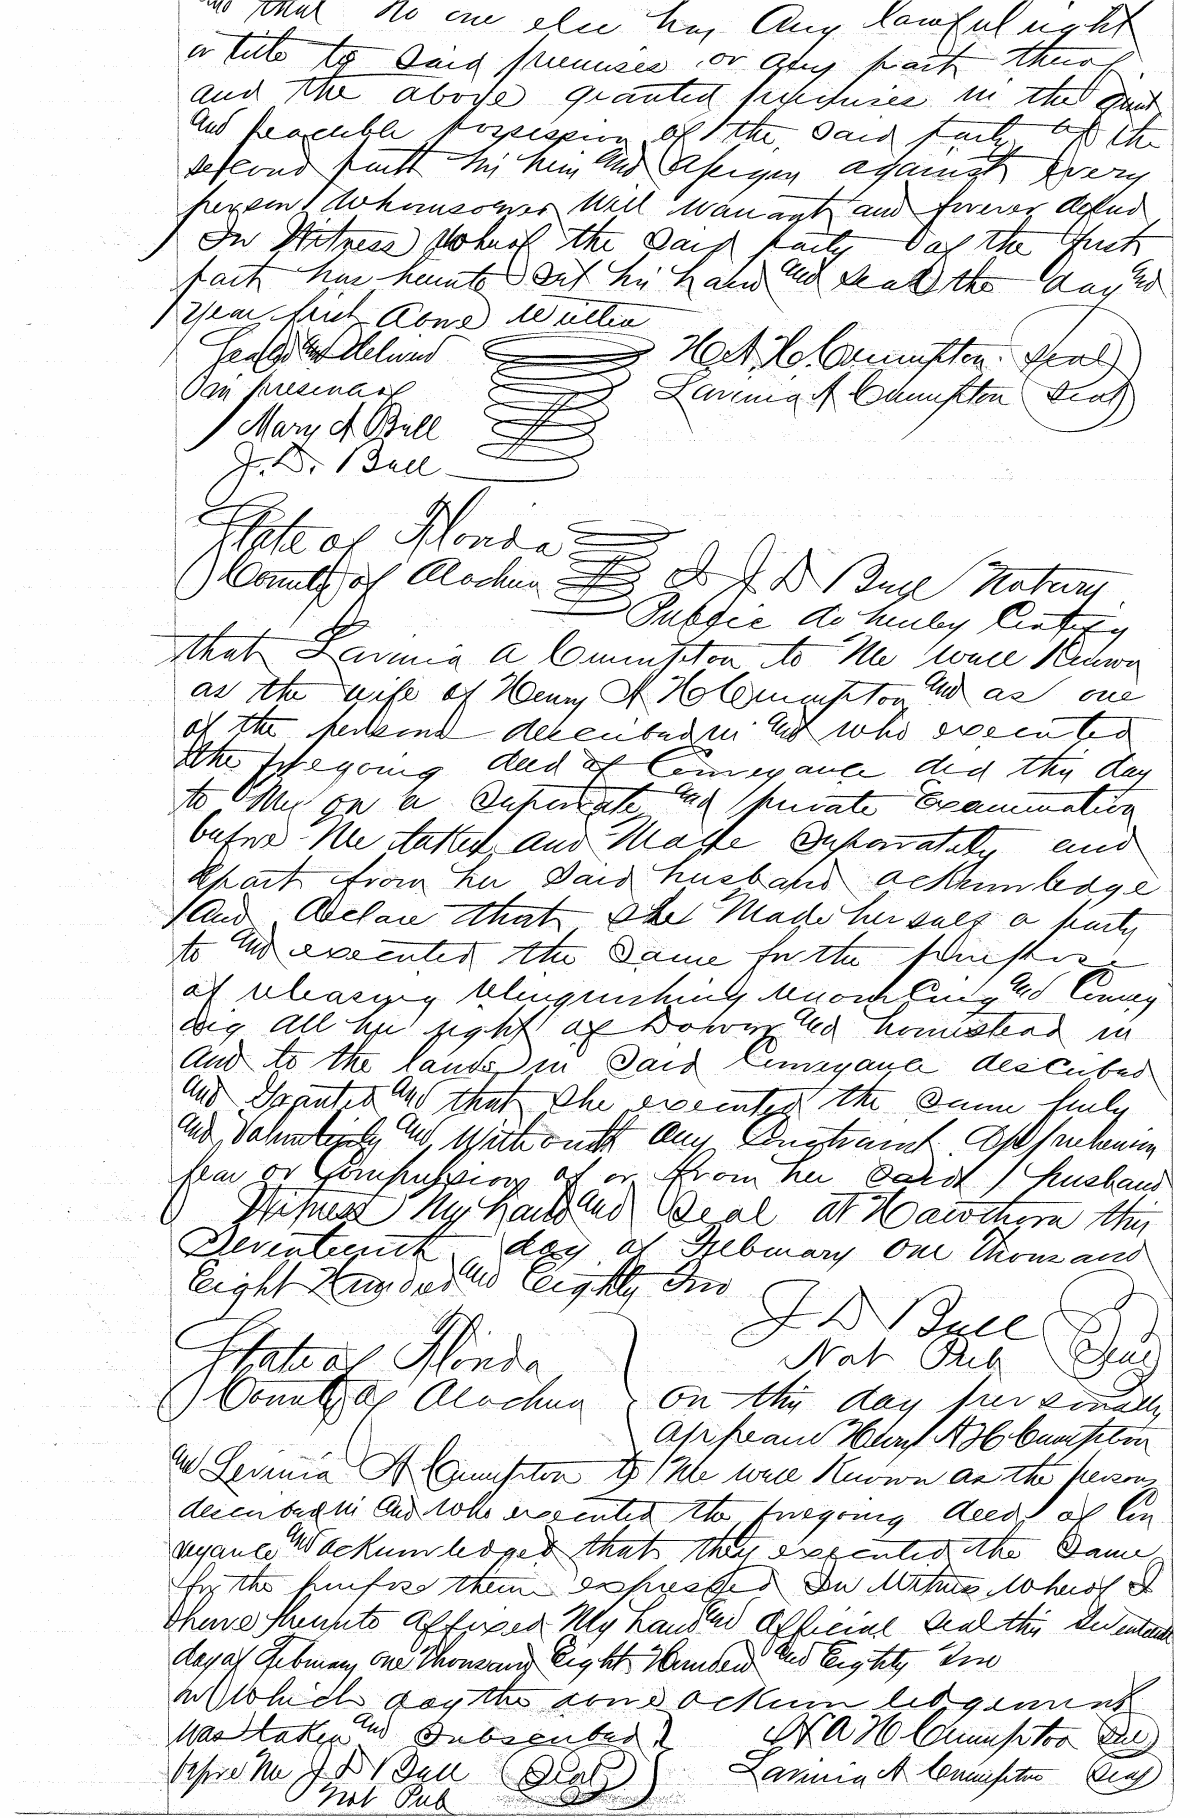 and that no one else has Any lawful right
or title to Said premises or any part thereof
and the above granted premises in the quiet
and peacible possession of the Said party of the
second part his heirs and Assigns against Every
person whomsoever Will warrant and forever defend
In Witness Whereof the Said party of the first
part has hereunto Set his hand and seal the day and
year first above Written
Sealed and delivered H. A. H. Crumpton Seal
in presence of Lavinia A Crumpton Seal
Mary A Bull
J. D. Bull
State of Florida
County of Alachua I J D Bull Notary
Public do hereby Certify
that Lavinia A Crumpton to Me well Known
as the wife of Henry A H Crumpton and as one
of the persons described in and who executed
the foregoing deed of Conveyance did this day
to Me on a Seperate and private Examination
before Me taken and Made Seporately and
apart from her Said husband acknowledge
And declare that She Made herself a party
to and executed the Same for the purpose
of releasing relinquishing renouncing and Convey
ing All her right of Dower and homestead in
and to the lands in Said Conveyance described
and Granted and that She executed the Same freely
and Voluntarily and Without Any Constraint Apprehension
fear or Compulsion of or from her Said husband
Witness My hand and Seal at Hawthorn this
Seventeenth day of February One Thousand
Eight Hundred and Eighty Two
J D Bull
Nat Pub Seal
State of Florida
County of Alachua On this day personally
appeared Henry A H Crumpton
and Lavinia A Crumpton to Me well Known as the persons
described in and who executed the foregoing deed of Con
veyance and acknowledged that they executed the Same
for the purpose therein expressed In Witness Whereof I
have hereunto affixed My hand and official Seal this Seventeenth
day of February one thousand Eight Hundred and Eighty Two
on which day the above acknowledgement
was taken and Subscribed H A H Crumpton Seal
before Me J D Bull Seal Lavinia A Crumpton Seal
Not Pub